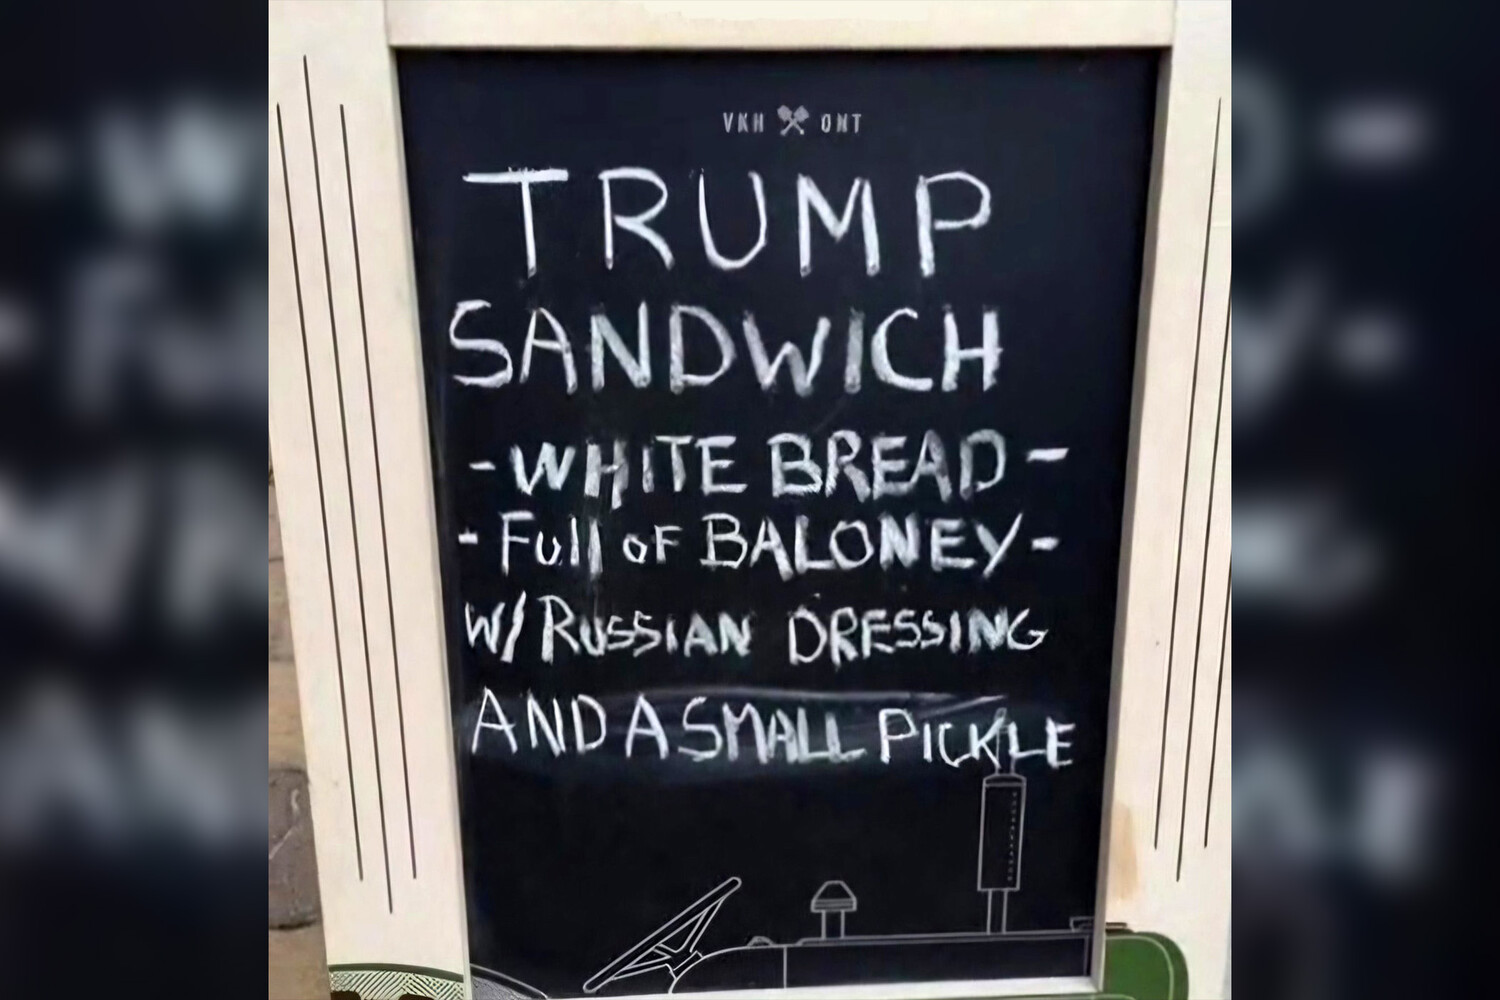 VKH ONT
TRUMP
SANDWICH
-WHITE BREAD-
-Full OF BALONEY-
W/ RUSSIAN DRESSING
AND A SMALL PICKLE